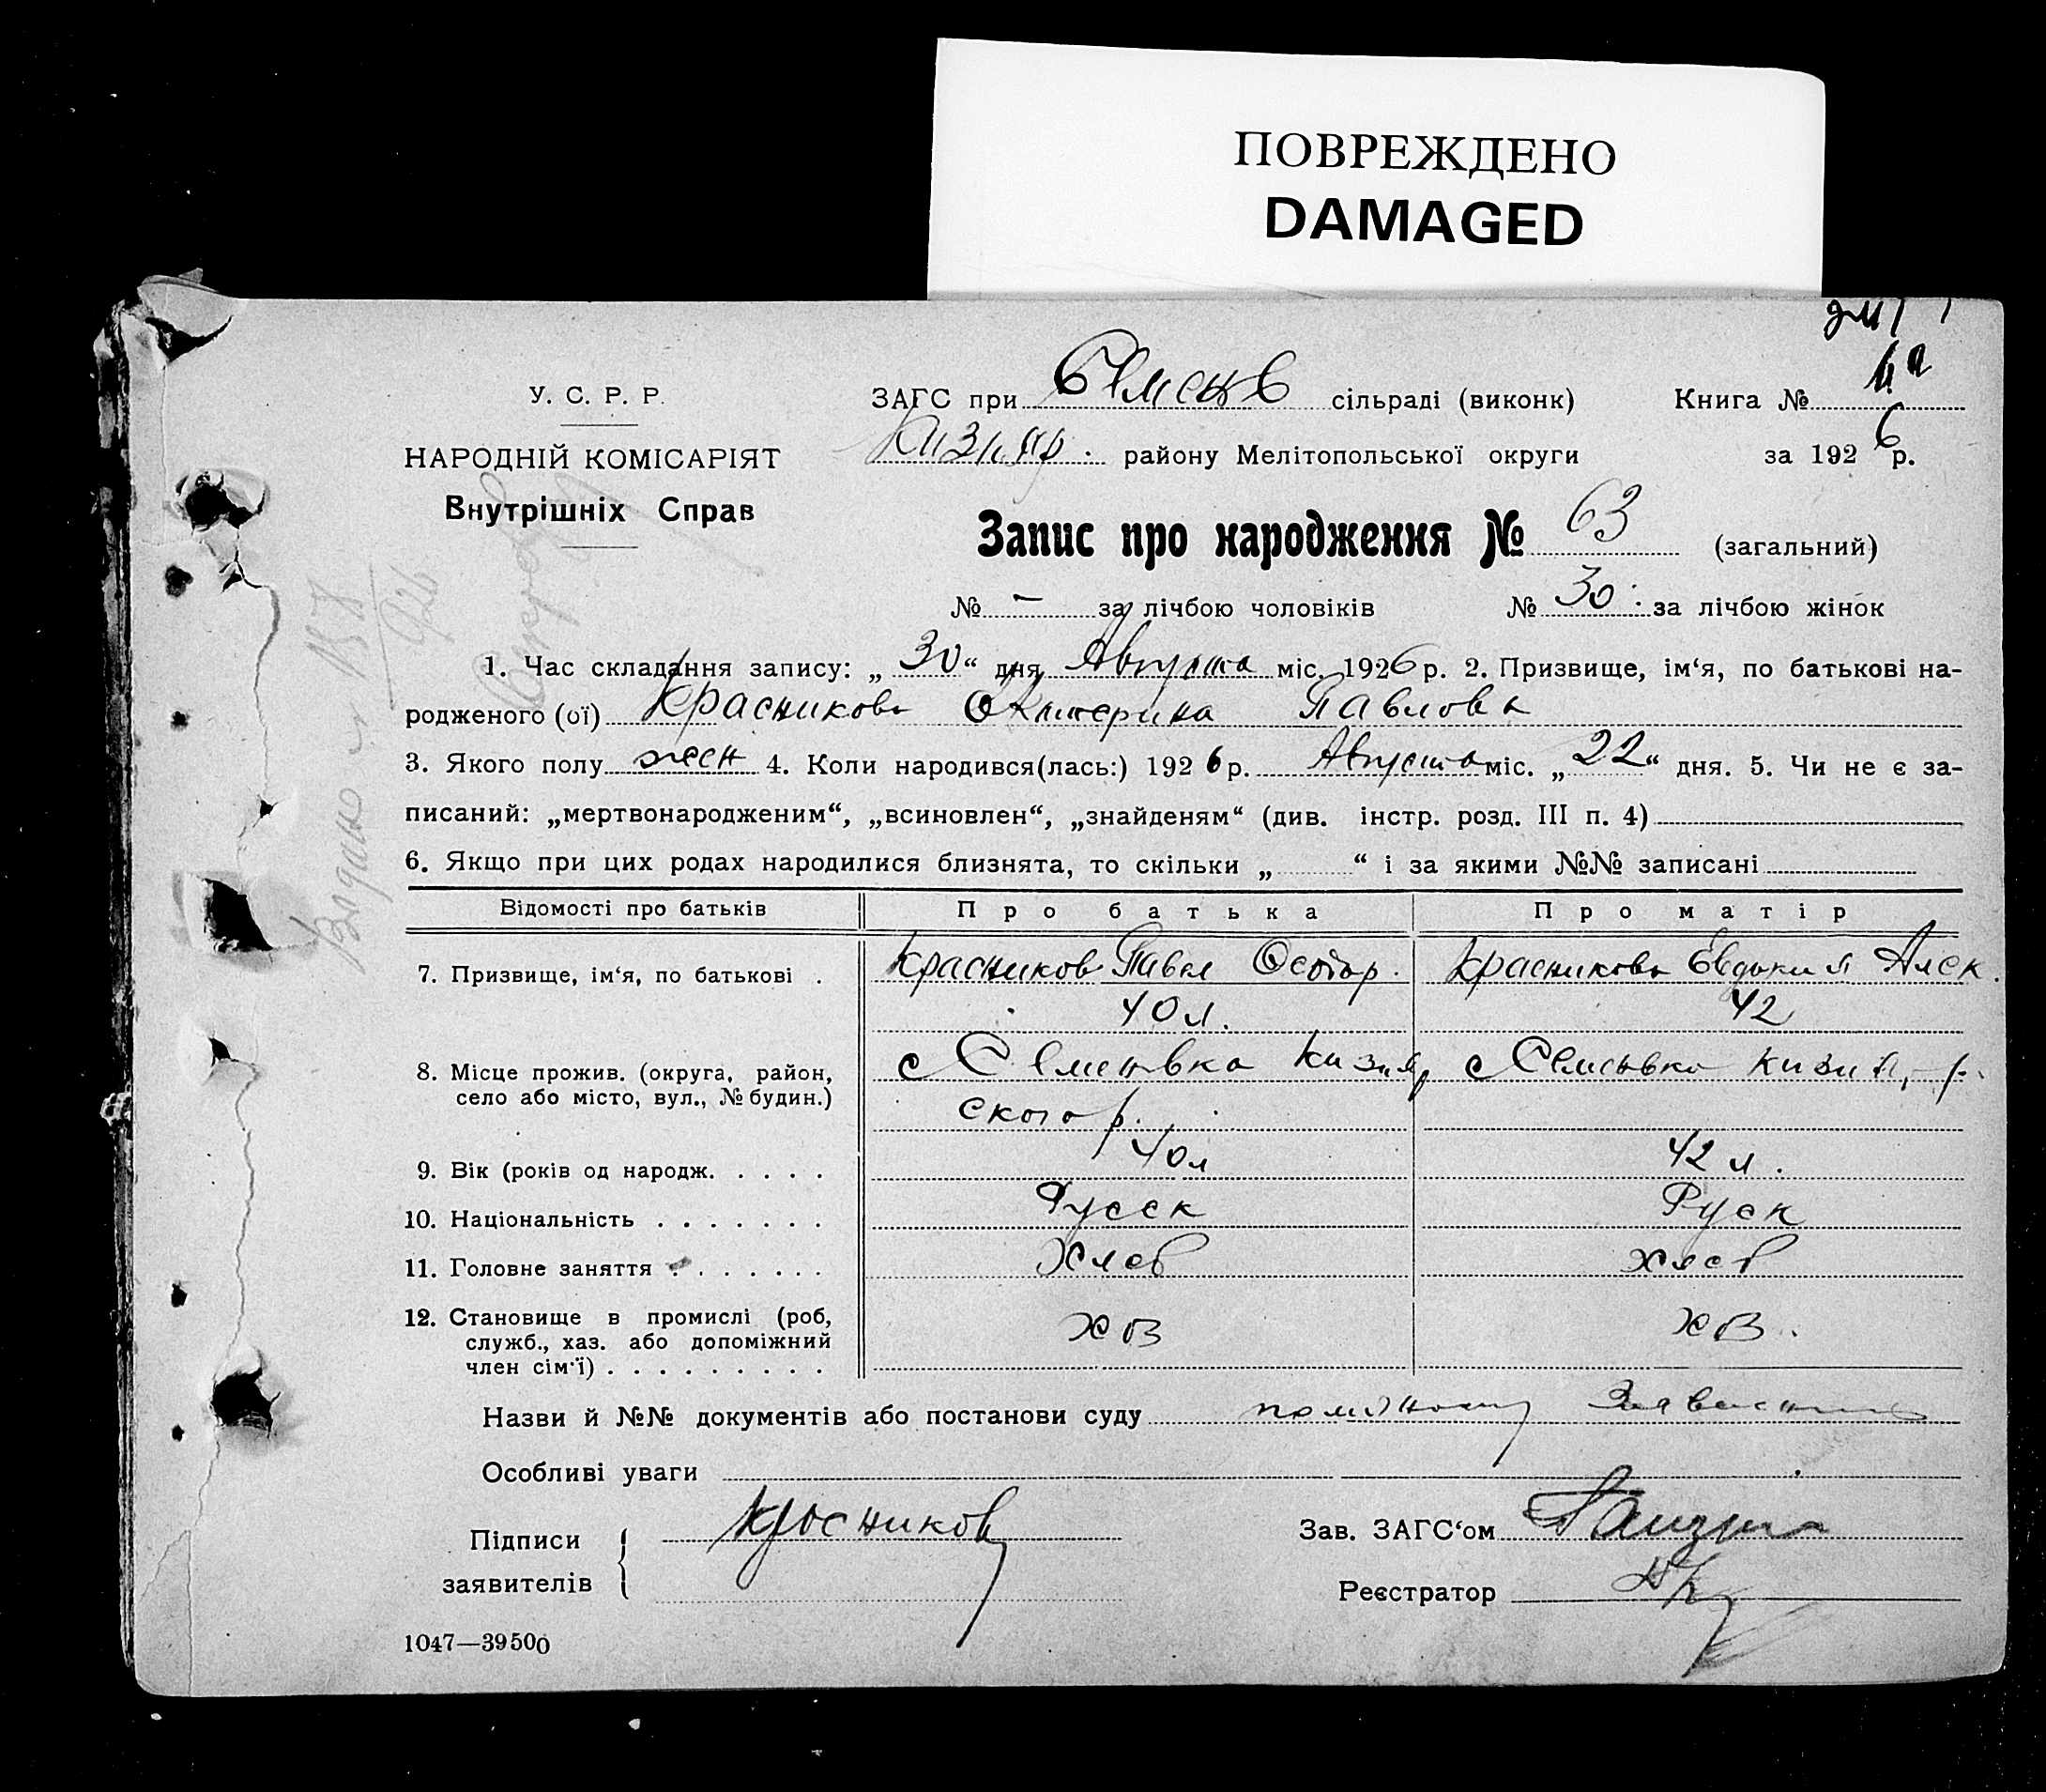 ПОВРЕЖДЕНО
DAMAGED
У. С. Р. Р.
НАРОДНІЙ КОМІСАРІЯТ
Внутрішніх Справ
ЗАГС при Семенов сільраді (виконк)
Кизияр. району Мелітопольської округи
Книга №
за 1926 р.
Запис про народження № 63 (загальний)
№ - за лічбою чоловіків № 30 за лічбою жінок
1. Час складання запису: „30“ дня Августа міс. 1926 р. 2. Призвище, ім‘я, по батькові на-
родженого (ої) Красникова Екатерина Павловн
3. Якого полу жен 4. Коли народився(лась:) 1926 р. Августа міс. „22“ дня. 5. Чи не є за-
писаний: „мертвонародженим“, „всиновлен“, „знайденям“ (див. інстр. розд. III п. 4)
6. Якщо при цих родах народилися близнята, то скільки „ “ і за якими №№ записані
Відомості про батьків Про батька Про матір
7. Призвище, ім‘я, по батькові . Красников Павел Федор. Красникова Евдокия Алек.
40 л. 42
8. Місце прожив. (округа, район, с Семеновка Кизияр с Семеновка Кизия, р.
село або місто, вул., № будин.) ского р.
9. Вік (років од народж. . . . . 40 л 42 л.
10. Національність . . . . . . . Русск Руск
11. Головне заняття . . . . . . . Хлеб хлеб
12. Становище в промислі (роб,
служб., хаз. або допоміжний хоз хоз.
член сім‘ї) . . . . . . . . .
Назви й №№ документів або постанови суду
Особливі уваги
Підписи
заявителів
Красников
Зав. ЗАГС‘ом
Реєстратор
1047—39500